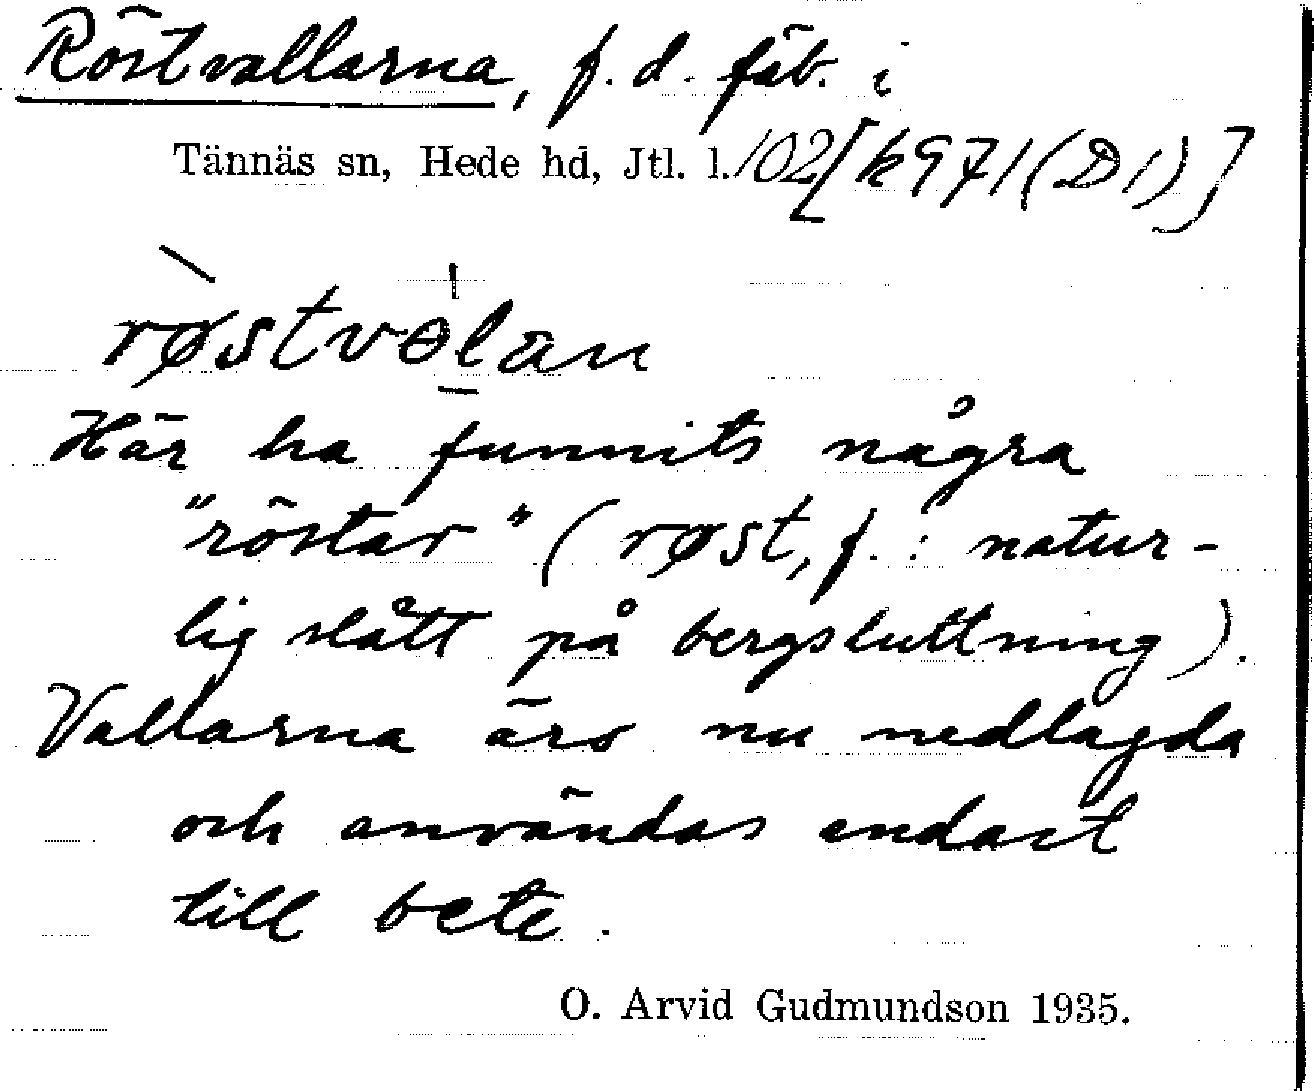 Röstvallarna, f.d. fäb. i
Tännäs sn, Hede hd, Jtl. l. 102 [k 971 (D1)]
røstvɵlan
Här ha funnits några
"röstar" (røst, f.: natur-
lig slått på bergsluttning).
Vallarna äro nu nedlagda
och användas endast
till bete.
O. Arvid Gudmundson 1935.